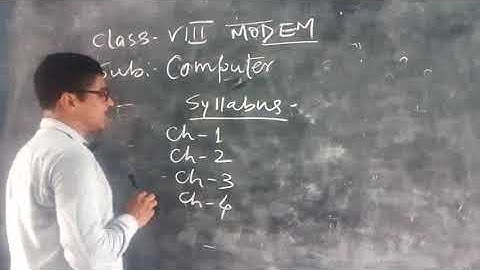 Class- VIII MODEM
Sub:- Computer
Syllabus -
Ch-1
Ch-2
Ch-3
Ch-4